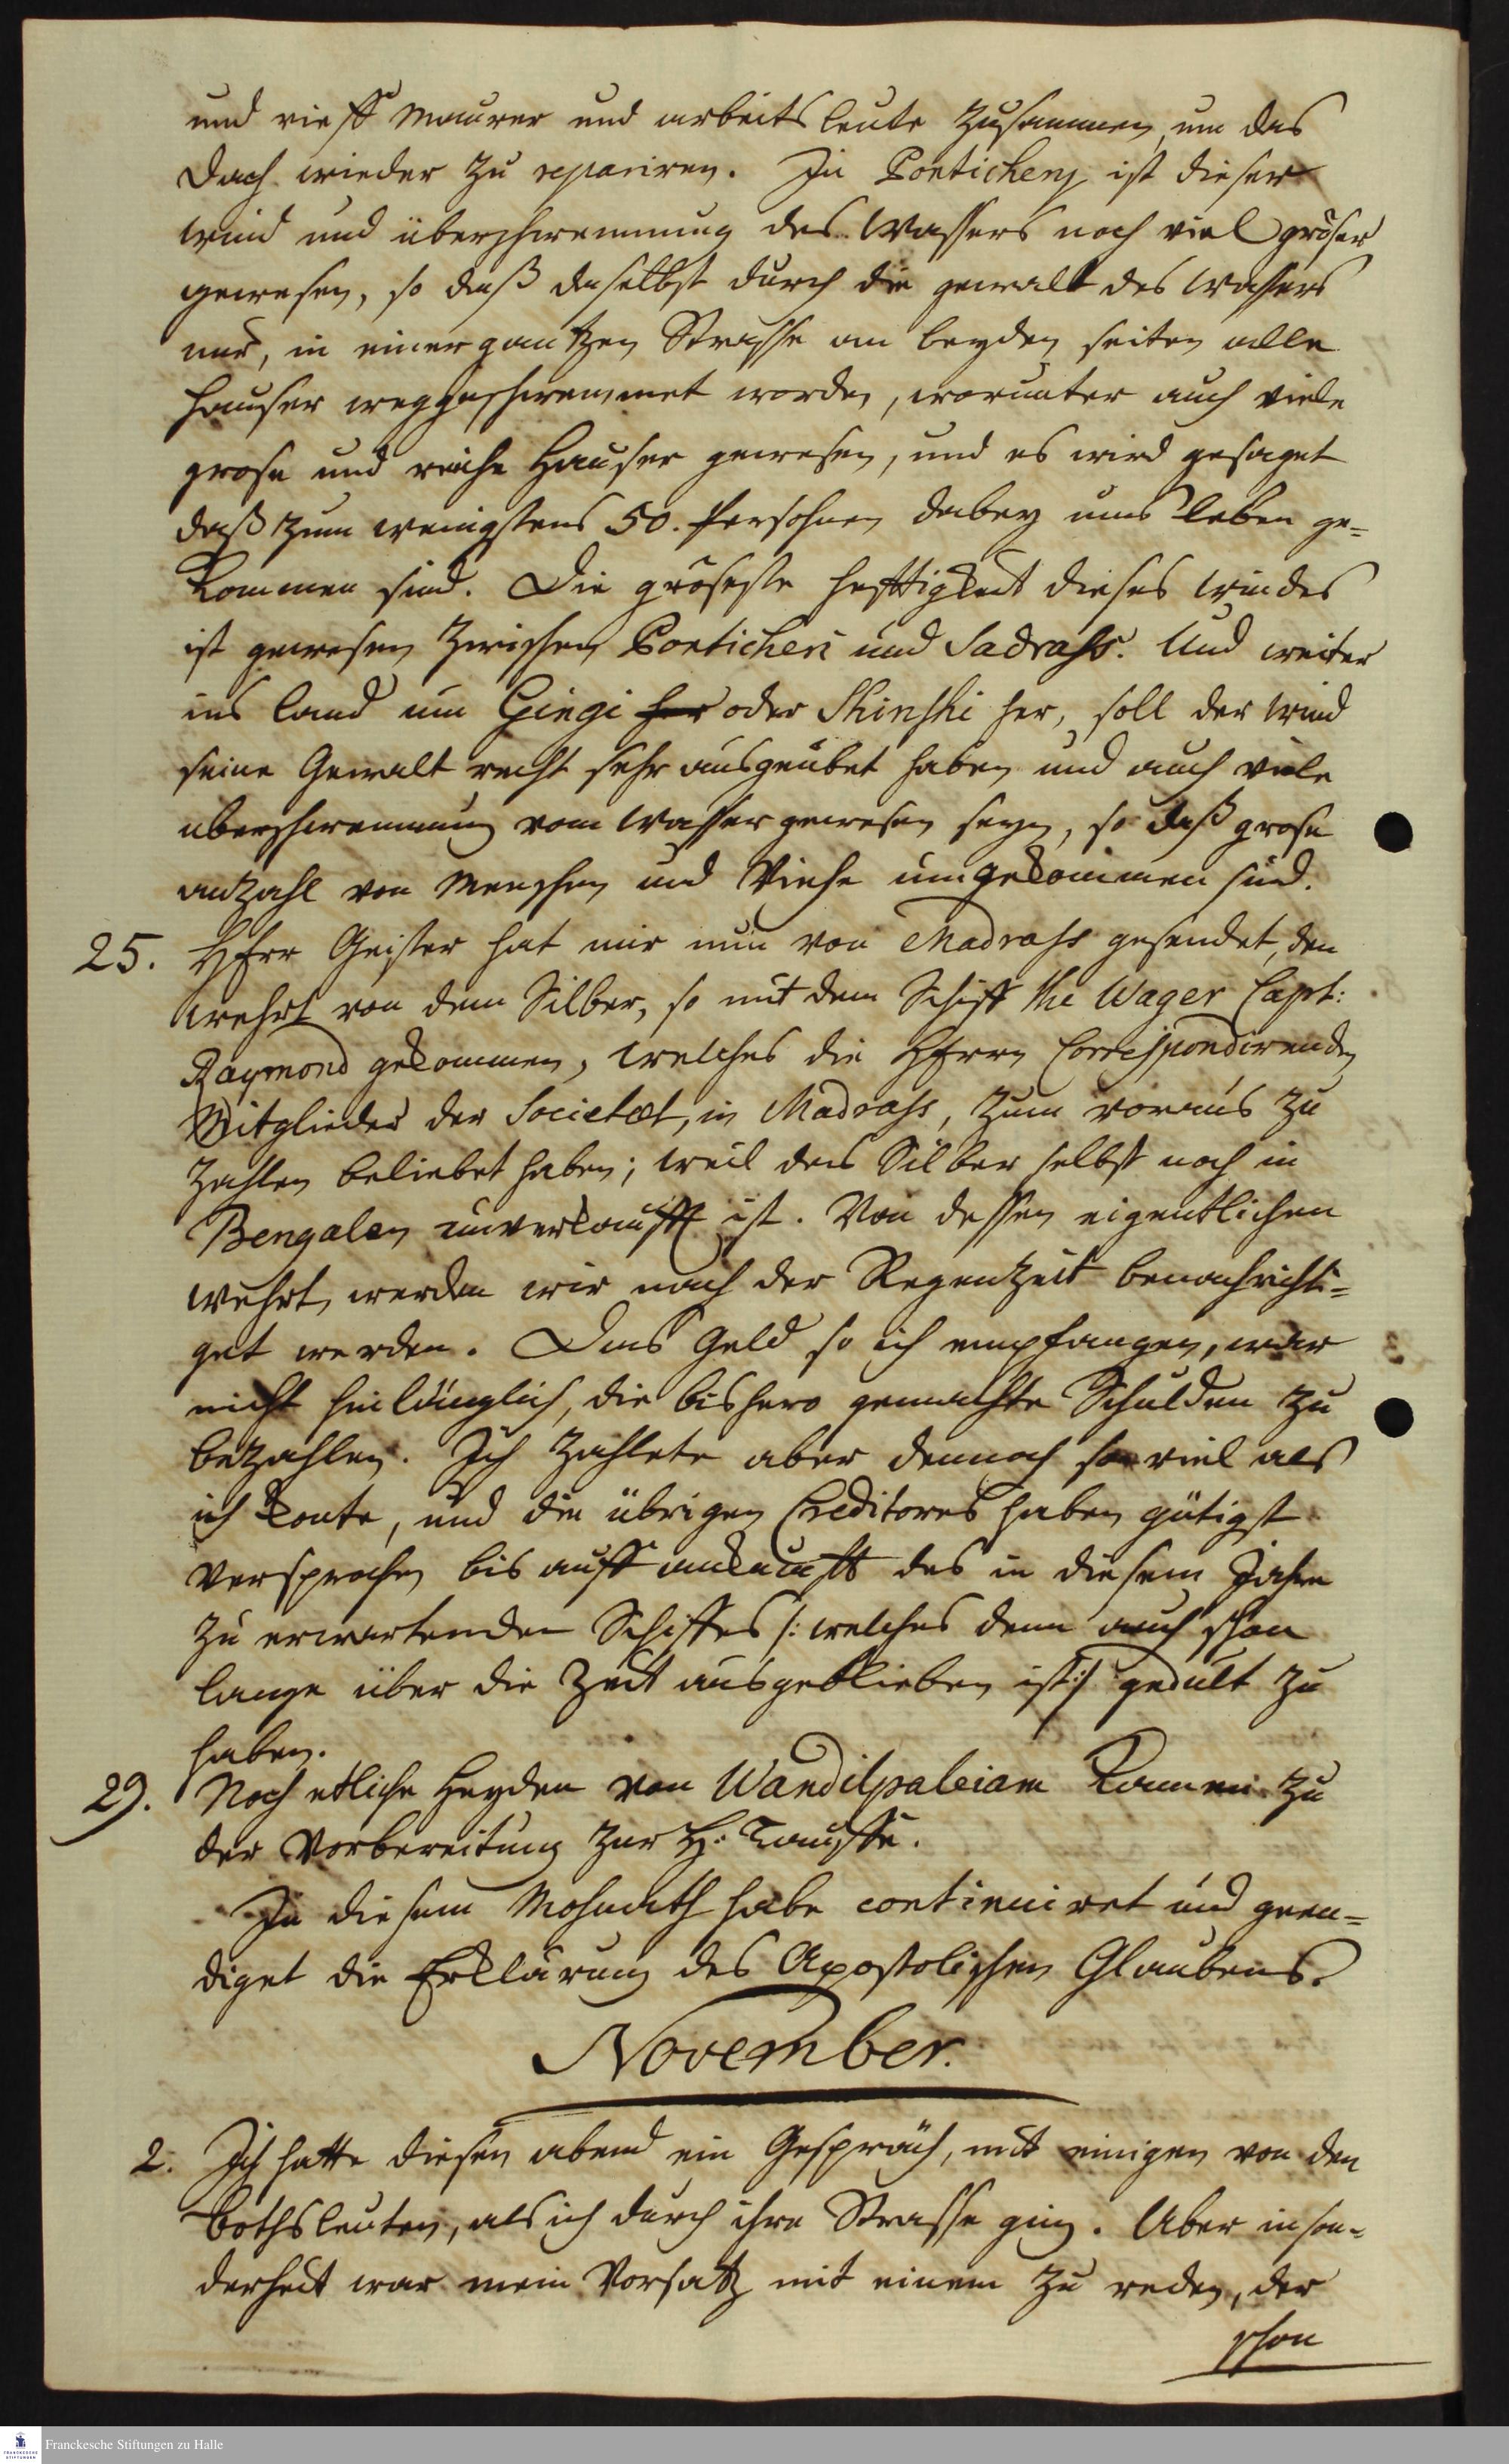 und rieff Maurer und arbeits leute zusammen, um das
Dach wieder zu repariren. In Ponticheri ist dieser
wind und überschwemmung des Wassers noch viel gröser
gewesen, so daß daselbst durch die gewalt des Wassers
nur, in einer gantzen Strasse an beyden seiten alle
Hauser weggeschwemmet worden, worunter auch viele
grose und reiche Hauser gewesen, und es wird gesaget
daß zum wenigstens 50. Persohnen dabey ums leben ge-
kommen sind. Die gröseste hefftigkeit dieses windes
ist gewesen zwischen Ponticheri und Sadrass. Und weiter
ins land um Gingi her oder Shinshi her, soll der wind
seine Gewalt recht sehr ausgeübet haben und auch viele
uberschwemmung vom Wasser gewesen seyn, so daß grose
anzahl von Menschen und Viehe umgekommen sind.
25. HErr Geister hat mir nun von Madrass gesendet, den
wehrt von dem Silber, so mit dem Schiff the Wager Capt:
Raymond gekommen, welches die HErrn Correspondirenden
Mitglieder der Societæt, in Madrass, zum voraus zu
zahlen beliebet haben; weil das Silber selbst noch in
Bengalen unverkaufft ist. Von dessen eigentlichen
wehrt, werden wir nach der Regenzeit benachrichti-
get werden. Das Geld so ich empfangen, war
nicht hinlänglich, die bishero gemachte Schulden zu
bezahlen. Ich zahlete aber dennoch so viel als
ich konte, und die übrigen Creditores haben gütigst
versprochen bis auff ankunfft des in diesem Jahre
zu erwartenden Schiffes /: welches denn auch schon
lange über die Zeit ausgeblieben ist :/ gedult zu
haben.
29. Noch etliche Heyden von Wandilpaleiam kamen zu
der Vorbereitung zur H. Tauffe.
In diesem Mohnath habe continuiret und geen-
diget die Erklärung des Apostolischen Glaubens.
November.
2. Ich hatte diesen abend ein Gespräch, mit einigen von den
bothsleuten, als ich durch ihre Strasse ging. Aber inson-
derheit war mein Vorsatz mit einem zu reden, der
schon
Franckesche Stiftungen zu Halle